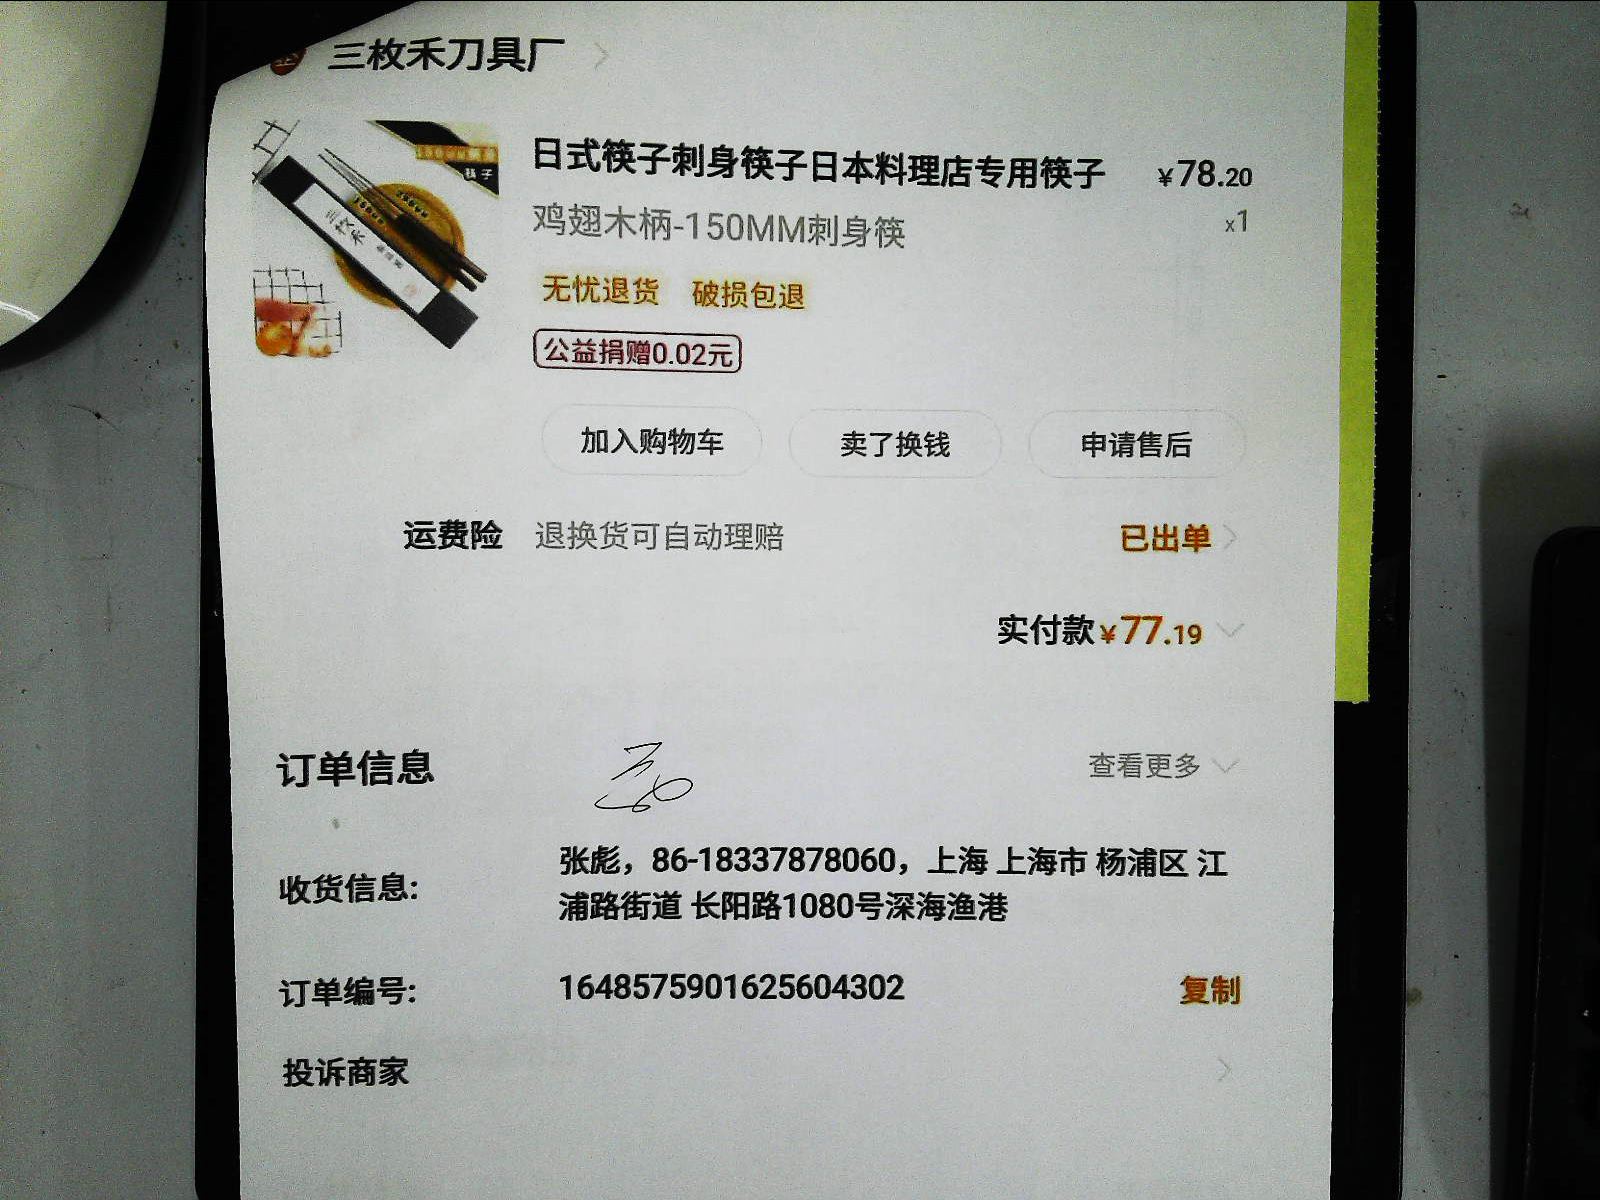 三枚禾刀具厂
日式筷子刺身筷子日本料理店专用筷子 ¥78.20
鸡翅木柄-150MM刺身筷 x1
无忧退货 破损包退
公益捐赠0.02元
筷子
三枚禾
加入购物车 卖了换钱 申请售后
运费险 退换货可自动理赔 已出单
实付款¥77.19
订单信息 查看更多
收货信息: 张彪，86-18337878060，上海 上海市 杨浦区 江
浦路街道 长阳路1080号深海渔港
订单编号: 1648575901625604302 复制
投诉商家